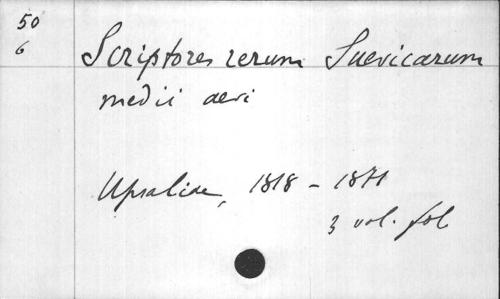 50
6
Scriptores rerum Suevicarum
medii aevi
Upsaliae, 1818 - 1871
3 vol. fol